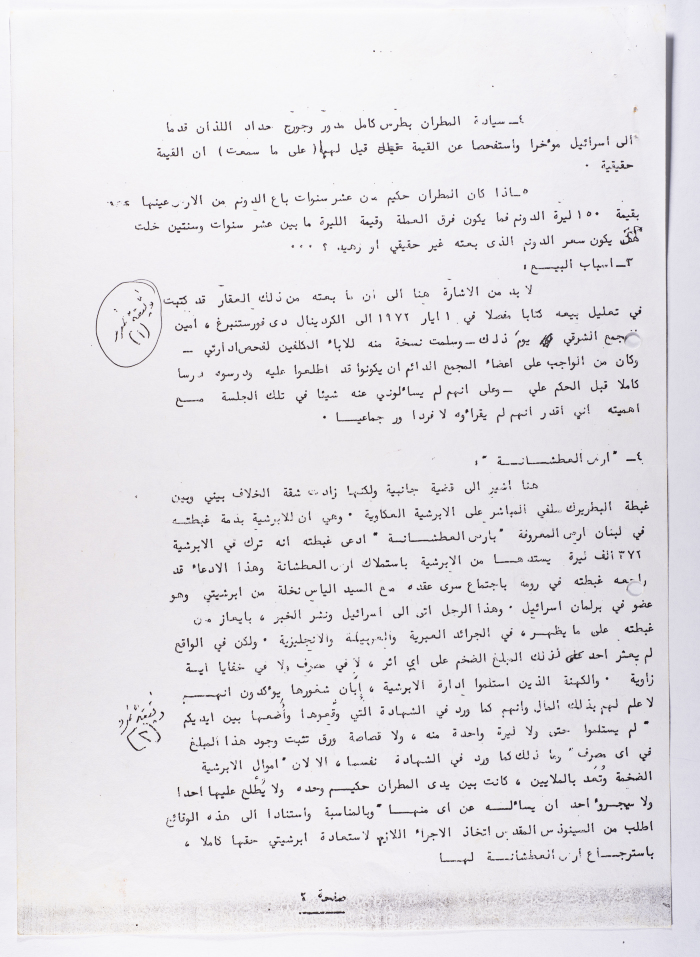 ٤ــ سيادة المطران بطرس كامل مدور وجورج حداد اللذان قدما
الى اسرائيل مؤخرا واستفحصا عن القيمة قيل لهما (على ما سمعت) ان القيمة
حقيقية ٠
٥ــ اذا كان المطران حكيم من عشر سنوات باع الدونم من الارض عينها
بقيمة ١٥٠ ليرة الدونم فما يكون فرق العملة وقيمة الليرة ما بين عشر سنوات وسنتين خلت
يكون سعر الدونم الذى بعته غير حقيقي او زهيد ؟ ٠٠٠
٣ــ اسباب البيــع :
لا بد من الاشارة هنا الى ان ما بعته من ذلك العقار قد كتبت
في تعليل بيعه كتابا مفصلا في ١ ايار ١٩٧٢ الى الكردينال دى فورستنبرغ ، امين
المجمع الشرقي يوم ذلك ــ وسلمت نسخة منه للاباء المكلفين لفحص ادارتي ــ
وكان من الواجب على اعضاء المجمع الدائم ان يكونوا قد اطلعوا عليه ودرسوه درسا
كاملا قبل الحكم علي ــ وعلى انهم لم يسألوني عنه شيئا في تلك الجلسة مــع
اهميته اني أقدر انهم لم يقرأوه لا فردا ور جماعيــا ٠
وثيقة
(١)
٤ــ " ارض العطشــانــة " :
هنا اشير الى قضية جانبية ولكنها زادت شقة الخلاف بيني وبين
غبطة البطريرك سلفي المباشر على الابرشية العكاوية ٠ وهي ان للابرشية بذمة غبطتــه
في لبنان ارض المعروفة " بارض العطشــانــة " ادعى غبطته انه ترك في الابرشية
٣٧٢ الف ليرة يستدهــا من الابرشية باستملاك ارض العطشانة وهذا الادعاء قد
غبطته في رومه باجتماع سرى عقده مع السيد الياس نخلة من ابرشيتي وهو
عضو في برلمان اسرائيل ٠ وهذا الرجل اتى الى اسرائيل ونشر الخبر ، بايعاز من
غبطته على ما يظهــر ، في الجرائد العبرية والعربية والانجليزية ٠ ولكن في الواقع
لم يعثر احد لذلك المبلغ الضخم على اي اثر ، لا في مصرف ولا في خفايا أيــة
زاوية ٠ والكهنة الذين استلموا إدارة الابرشية ، إبّان شغورها يؤكدون انهــم
لا علم لهم بذلك المال وانهم كما ورد في الشهادة التي وقّعوها وأضعها بين ايديكم
" لم يستلموا حتى ولا ليرة واحدة منه ، ولا قصاصة ورق تثبت وجود هذا المبلغ
في اى مصرف " وما ذلك كما ورد في الشهادة نفسها ، الا لان " اموال الابرشية
الضخمة وتُعد بالملايين ، كانت بين يدى المطران حكيــم وحده ولا يُطْلع عليها احدا
ولا سيجرؤ احد ان يسألــه عن اى منهــا " وبالمناسبة واستنادا الى هذه الوقائع
اطلب من السينوذس المقدس اتخاذ الاجراء اللازم لاستعادة ابرشيتي حقها كاملا ،
باسترجــاع ارض العطشانــة لهــا
(٢)
صفحة ٢